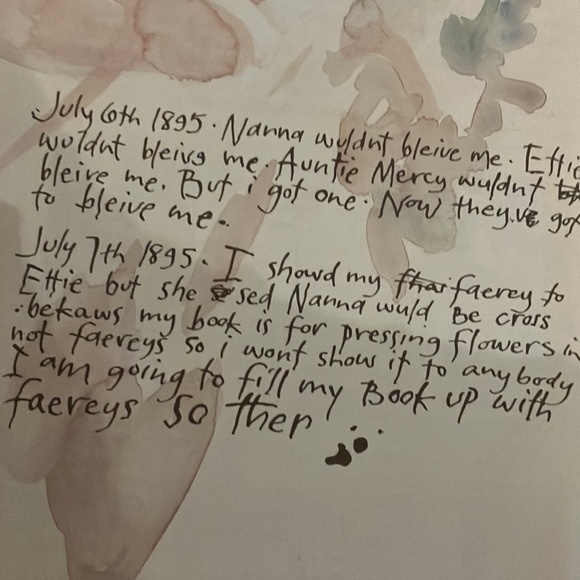 July 6th 1895. Nanna wuldnt bleive me. Effie
woldnt bleive me. Auntie Mercy wuldnt
bleive me. But i got one. Now they.ve got
to bleive me.
July 7th 1895. I showd my faerey to
Effie but she sed Nanna wuld Be cross
bekaws my book is for pressing flowers in
not faereys so i wont show it to anybody
I am going to fill my Book up with
faereys so ther